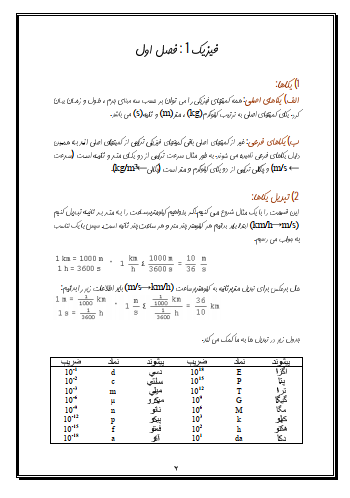 فیزیک 1: فصل اول
1) یکاها:
الف) یکاهای اصلی: همه کمیتهای فیزیکی را می توان بر حسب سه مبنای جرم ، طول و زمان بیان
کرد. یکای کمیتهای اصلی به ترتیب کیلوگرم (kg) ، متر (m) و ثانیه (s) می باشد.
ب) یکاهای فرعی: غیر از کمیتهای اصلی باقی کمیتهای فیزیکی ترکیبی از کمیتهای اصلی اند. به همین
دلیل یکاهای فرعی نامیده می شوند. به طور مثال سرعت ترکیبی از دو یکای متر و ثانیه است (سرعت
← m/s) و چگالی ترکیبی از دو یکای کیلوگرم و متر است (چگالی ← kg/m³).
2) تبدیل یکاها:
این قسمت را با یک مثال شروع می کنیم. اگر بخواهیم کیلومتربرساعت را به متر بر ثانیه تبدیل کنیم
(km/h→m/s) ابتدا باید بدانیم هر کیلومتر چند متر و هر ساعت چند ثانیه است، سپس با یک تناسب
به جواب می رسیم.
1 km = 1000 m
1 h = 3600 s
1 km/h = 1000 m / 3600 s = 10 m / 36 s
حال برعکس برای تبدیل متربرثانیه به کیلومتربرساعت (m/s→km/h) باید اطلاعات زیر را بدانیم:
1 m = 1/1000 km
1 s = 1/3600 h
1 m/s = 1/1000 km / 1/3600 h = 36 km / 10 h
جدول زیر در تبدیل ها به ما کمک می کند.
پیشوند نمک ضریب پیشوند نمک ضریب
اگزا E 10¹⁸ دسی d 10⁻¹
پتا P 10¹⁵ سانتی c 10⁻²
ترا T 10¹² میلی m 10⁻³
گیگا G 10⁹ میکرو µ 10⁻⁶
مگا M 10⁶ نانو n 10⁻⁹
کیلو k 10³ پیکو p 10⁻¹²
هکتو h 10² فمتو f 10⁻¹⁵
دکا da 10¹ آتو a 10⁻¹⁸
۲